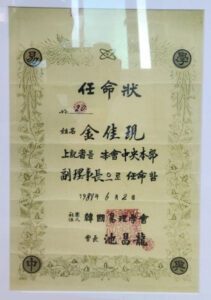 易 學
任命狀
20
姓名 金佳現
上記者를 本會中央本部
副理事長으로 任命함
年 6月 2日
社團法人 韓國易理學會
會長 池昌龍
中 興